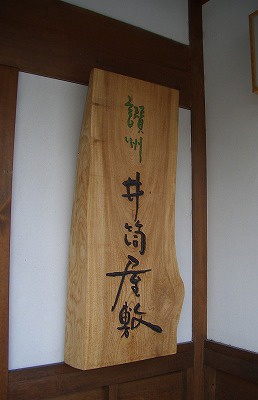 讃州
井筒屋敷